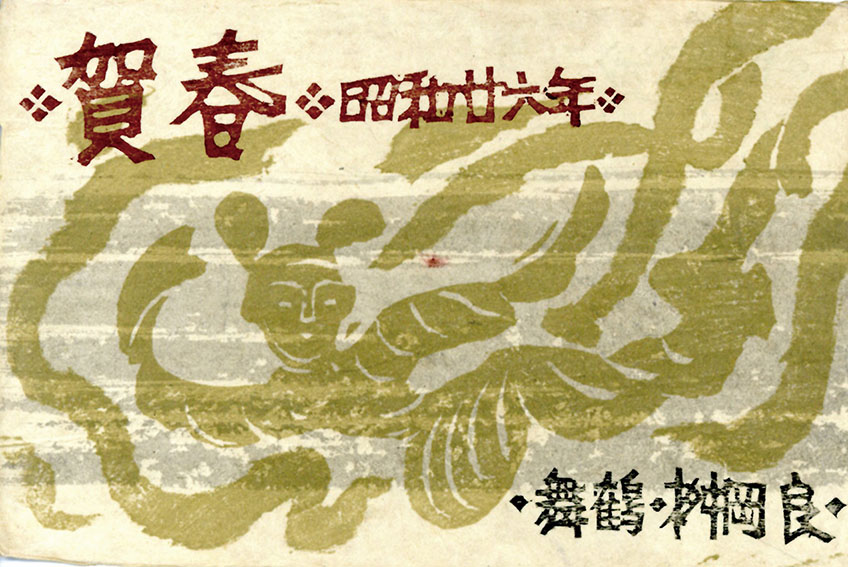 賀春 昭和廿六年
舞鶴・桝岡良